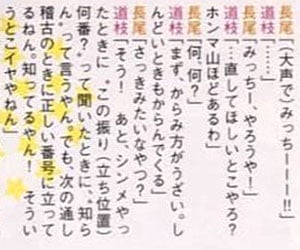 長尾「（大声で）みっちーーー!!」
道枝「……」
長尾「みっちー、やろうや！」
道枝「…直してほしいとこやろ？
ホンマ山ほどあるわ」
長尾「何、何？」
道枝「まず、からみ方がうざい。し
んどいときもからんでくる」
長尾「さっきみたいなやつ？」
道枝「そう！　あと、シンメやっ
たときに〝この振り（立ち位置）
何番？〟って聞いたときに、〝知ら
ん〟って言うやん。でも、次の通し
稽古のときに正しい番号に立って
るねん。知ってるやん！　そうい
うとこイヤやねん」